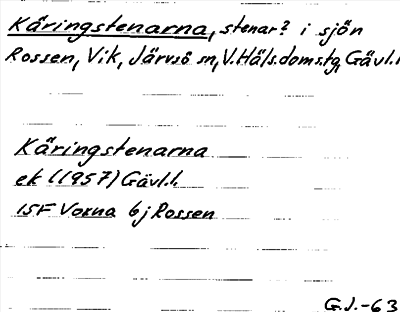 Käringstenarna, stenar? i sjön
Rossen, Vik, Järvsö sn, V.Häls.domstg, Gävl.l.
Käringstenarna
ek (1957) Gävl.l.
15F Voxna bj Rossen
G.J.-63